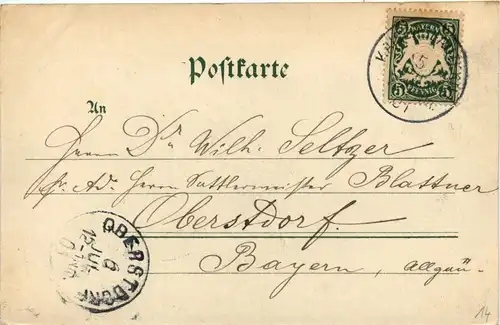 BAYERN
5 5
PFENNIG
5 5
Postkarte
An
Herrn Dr Wilh. Seltzer
pr. Ad. Herrn Sattlermeister Blattner
Oberstdorf.
Bayern, Allgäu-
OBERSTDORF
6
JUL
14